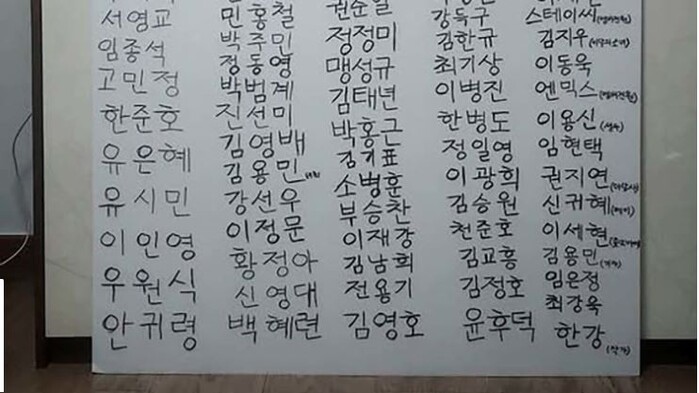 서영교 민홍철 권순일 강득구 스테이씨(멤버전원)
임종석 박주민 정정미 김한규 김지우
고민정 정동영 맹성규 최기상 이동욱
한준호 박범계 김태년 이병진 엔믹스(멤버전원)
유은혜 진선미 박홍근 한병도 이용신
유시민 김영배 김기표 정일영 임현택
이인영 김용민 소병훈 이광희 권지연
우원식 강선우 부승찬 김승원 신귀혜
안귀령 이정문 이재강 천준호 이세현
황정아 김남희 김교흥 김용민
신영대 전용기 김정호 임은정
백혜련 김영호 윤후덕 최강욱
한강(작가)